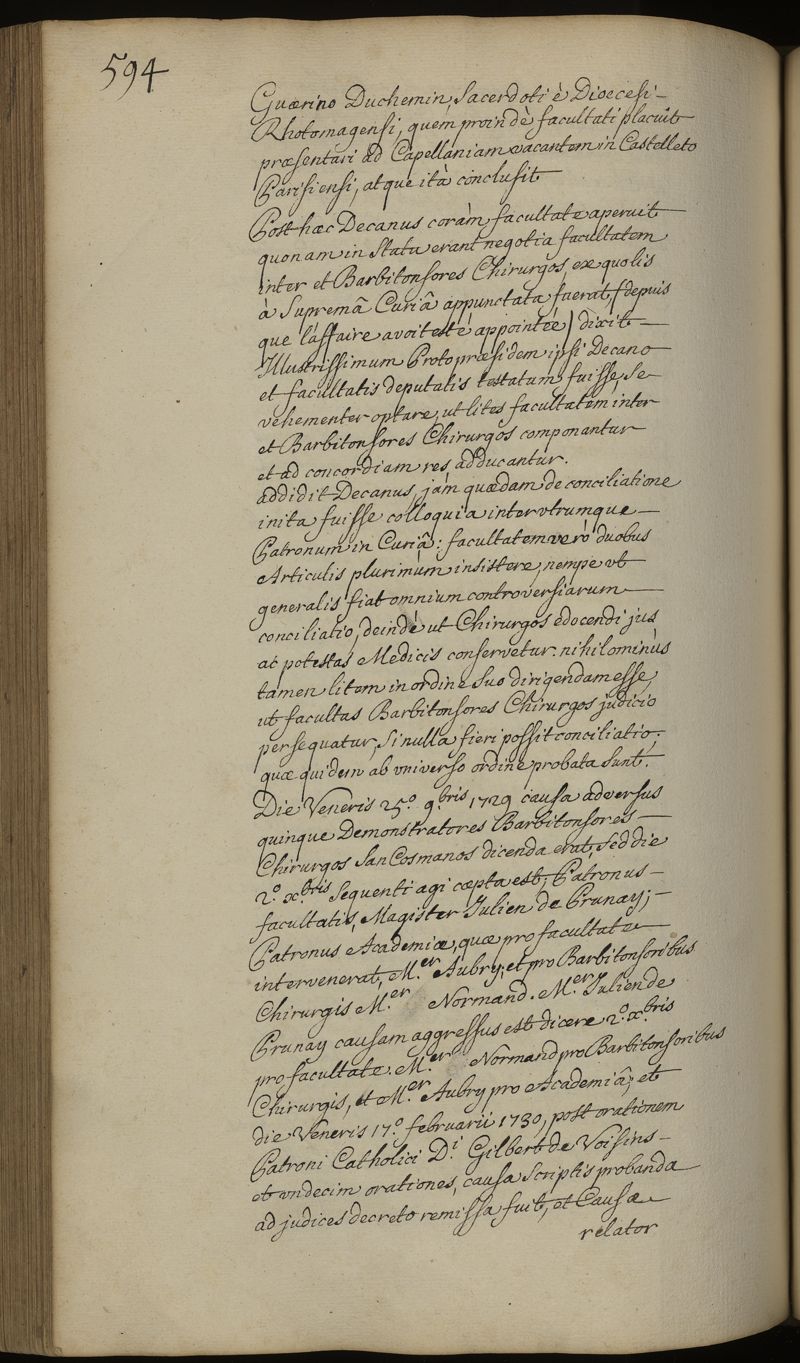 594
Guærino Duchemin, Sacerdoti è Dioecesi-
Rhotomagensi, quem proindè facultati placuit
præsentari ad Capellaniam vacantem in Castelleto
Parisiensi, atque ità conclusit
Post hæc Decanus coràm facultate aperuit
quonam in Statu erant negotia facultatem
inter et Barbitonsores Chirurgos, ex quo lis
à Supremâ Curiâ appunctata fuerat, (depuis
que l'affaire avoit esté appointée) dixit
Illustrissimum Protopræsidem ipsi Decano
et facultatis deputatis testatum fuisse, Se
vehementer optare, ut lites facultatem inter
et Barbitonsores Chirurgos componantur
et ad concordiam res adducantur.
addidit Decanus, jam quædam de conciliatione
inita fuisse colloquia inter vtrumque
Patronum in Curiâ: facultatem verò duobus
Articulis plurimùm insistere, nempe vt
generalis fiat omnium controversiarum
conciliatio, deindè ut Chirurgos edocendi jus
ac potestas Medicis conservetur. nihilominùs
tamen litem in ordine Suo dirigendam esse,
ut facultas Barbitonsores Chirurgos judicio
persequatur, Si nulla fieri possit conciliatio.
quæ quidem ab vniverso ordine probata Sunt.
Die Veneris 25.º 9.bris 1729 causa adversus
quinque Demonstratores Barbitonsores
Chirurgos San Cosmanos dicenda erat, Sed die
2.º x.bris Sequenti agi cæpta est; Patronus-
facultatis, Magister Julien de Prunay;-
Patronus Academiæ, quæ pro facultate
intervenerat, M.er Aubry; et pro Barbitonsoribus
Chirurgis M.er Normand. M.er Julien de
Prunay causam aggressus est dicere 2.º x.bris
pro facultate. M.er Normand pro Barbitonsoribus
Chirurgis, et M.er Aubry pro Academiâ; et
die Veneris 17.º februarii 1730, post orationem
Patroni Catholici D.i Gilbert de Voisins-
et vndecim orationes, causa Scriptis probanda
ad judices decreto remissa fuit, et Causæ
relator